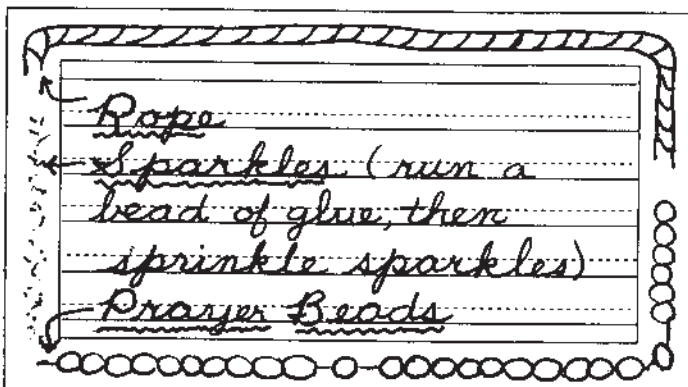 Rope
Sparkles (run a
bead of glue, then
sprinkle sparkles)
Prayer Beads